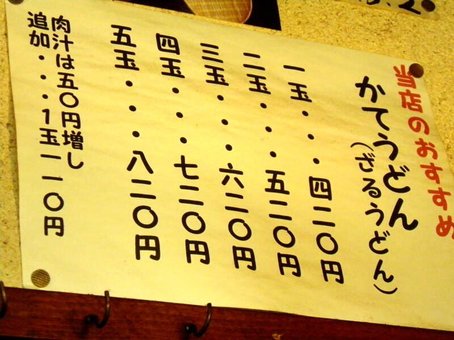 当店のおすすめ
かてうどん
(ざるうどん)
一玉・・・四二〇円
二玉・・・五二〇円
三玉・・・六二〇円
四玉・・・七二〇円
五玉・・・八二〇円
肉汁は五〇円増し
追加・・・1玉一一〇円